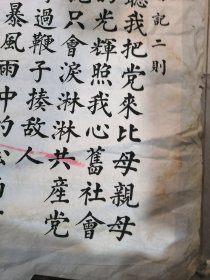 記二則
聽我把党來比母親母
的光輝照我心舊社會
只會淚淋淋共産党
過鞭子揍敵人
暴風雨中的